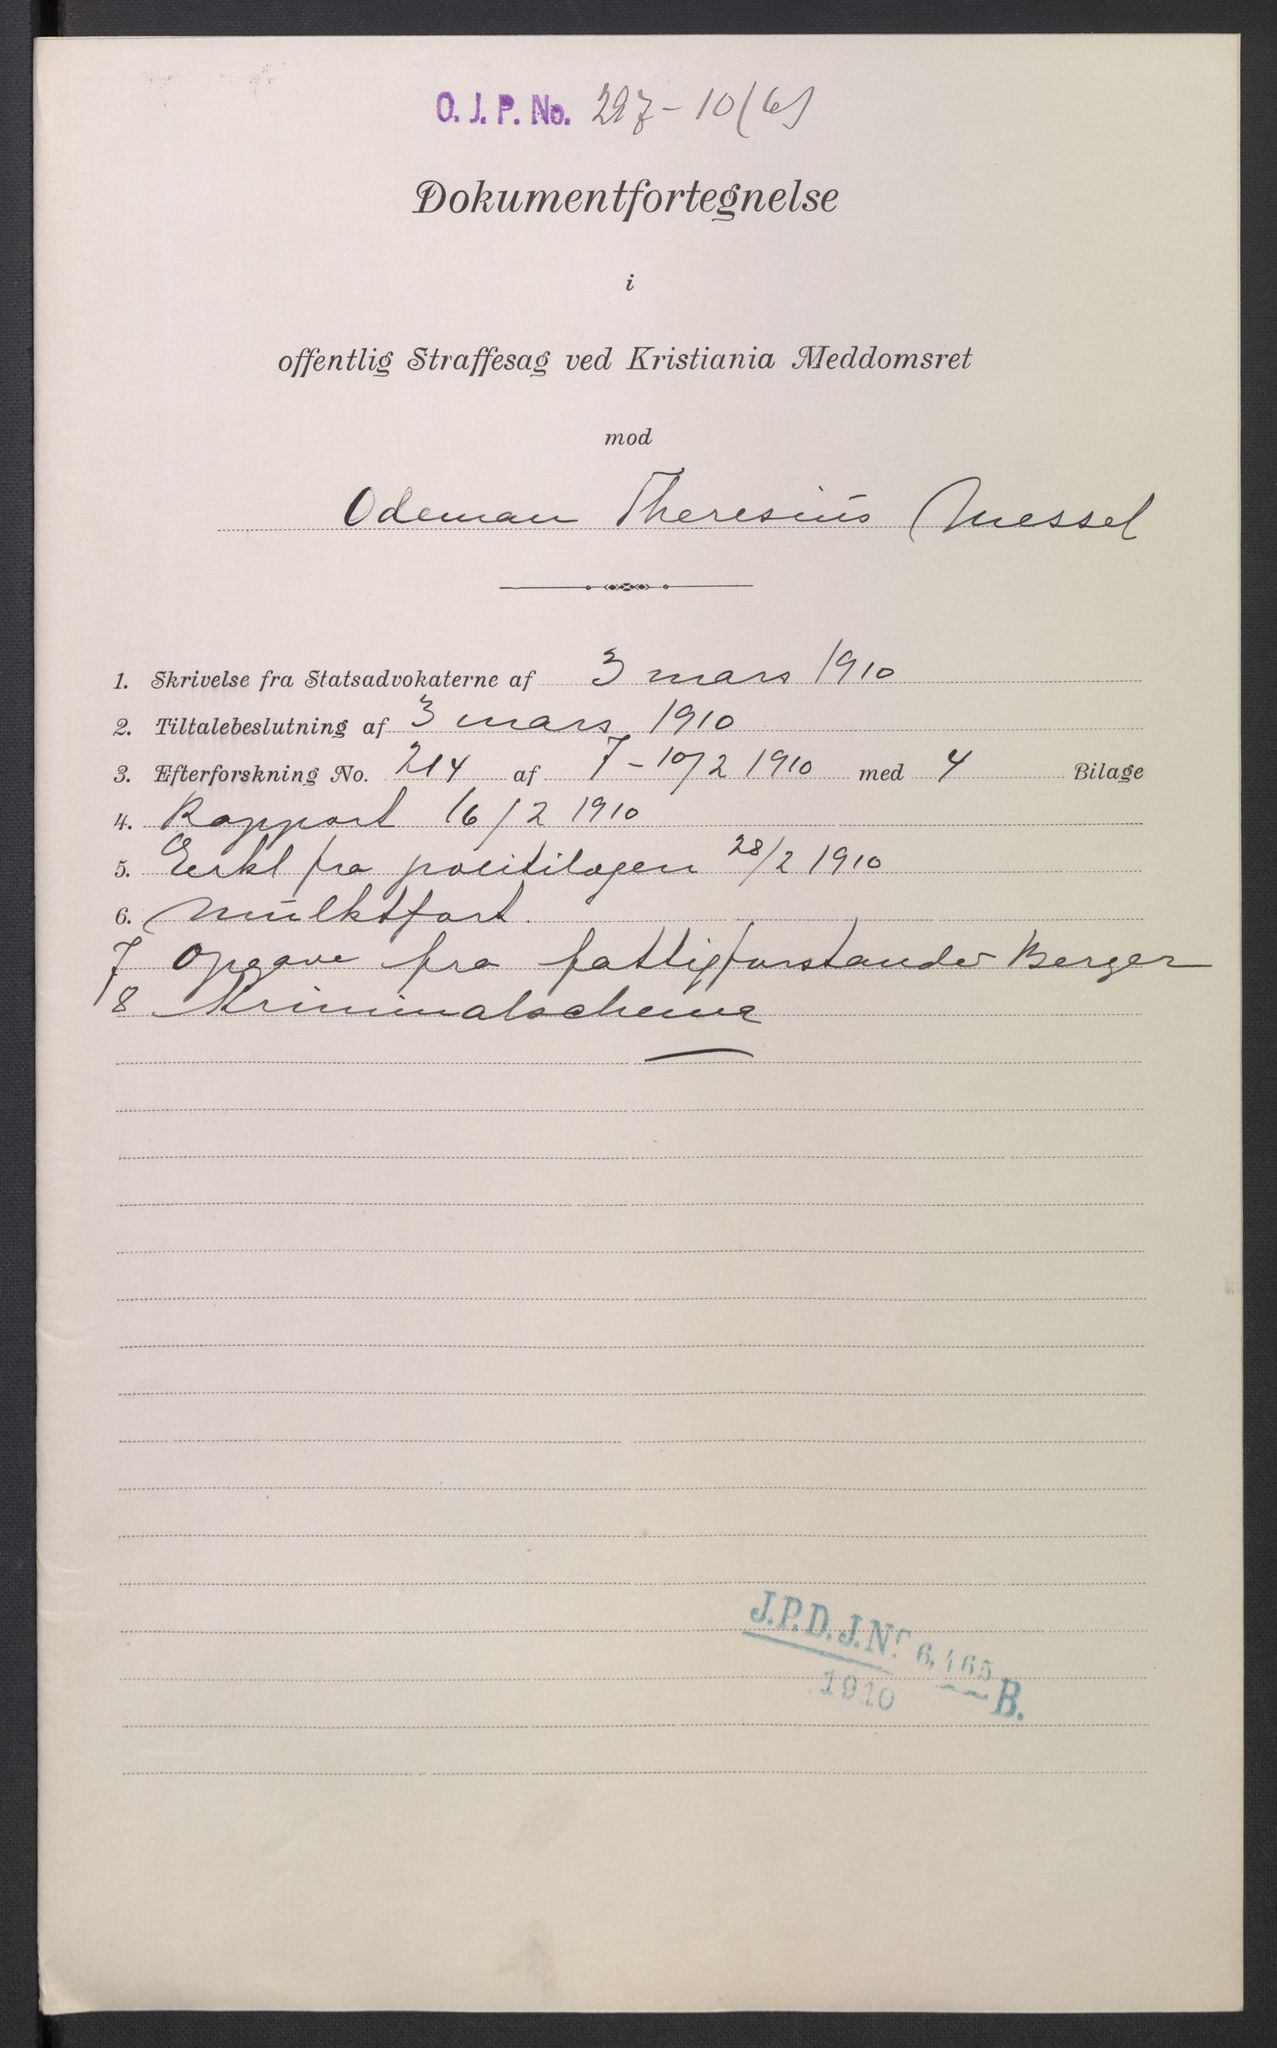 O. J. P. No. 297-10(6)
Dokumentfortegnelse
i
offentlig Straffesag ved Kristiania Meddomsret
mod
Odeman Theresius Messel
1. Skrivelse fra Statsadvokaterne af 3 mars 1910
2. Tiltalebeslutning af 3 mars 1910
3. Efterforskning No. 214 af 7-10/2 1910 med 4 Bilage
4. Rapport 16/2 1910
5. Erkl fra politilægen 28/2 1910
6. Mulktfort.
7 Opgave fra fattigforstander Berger
8 Kriminalschema
J.P.D. J.Nr 6,465
1910 B.